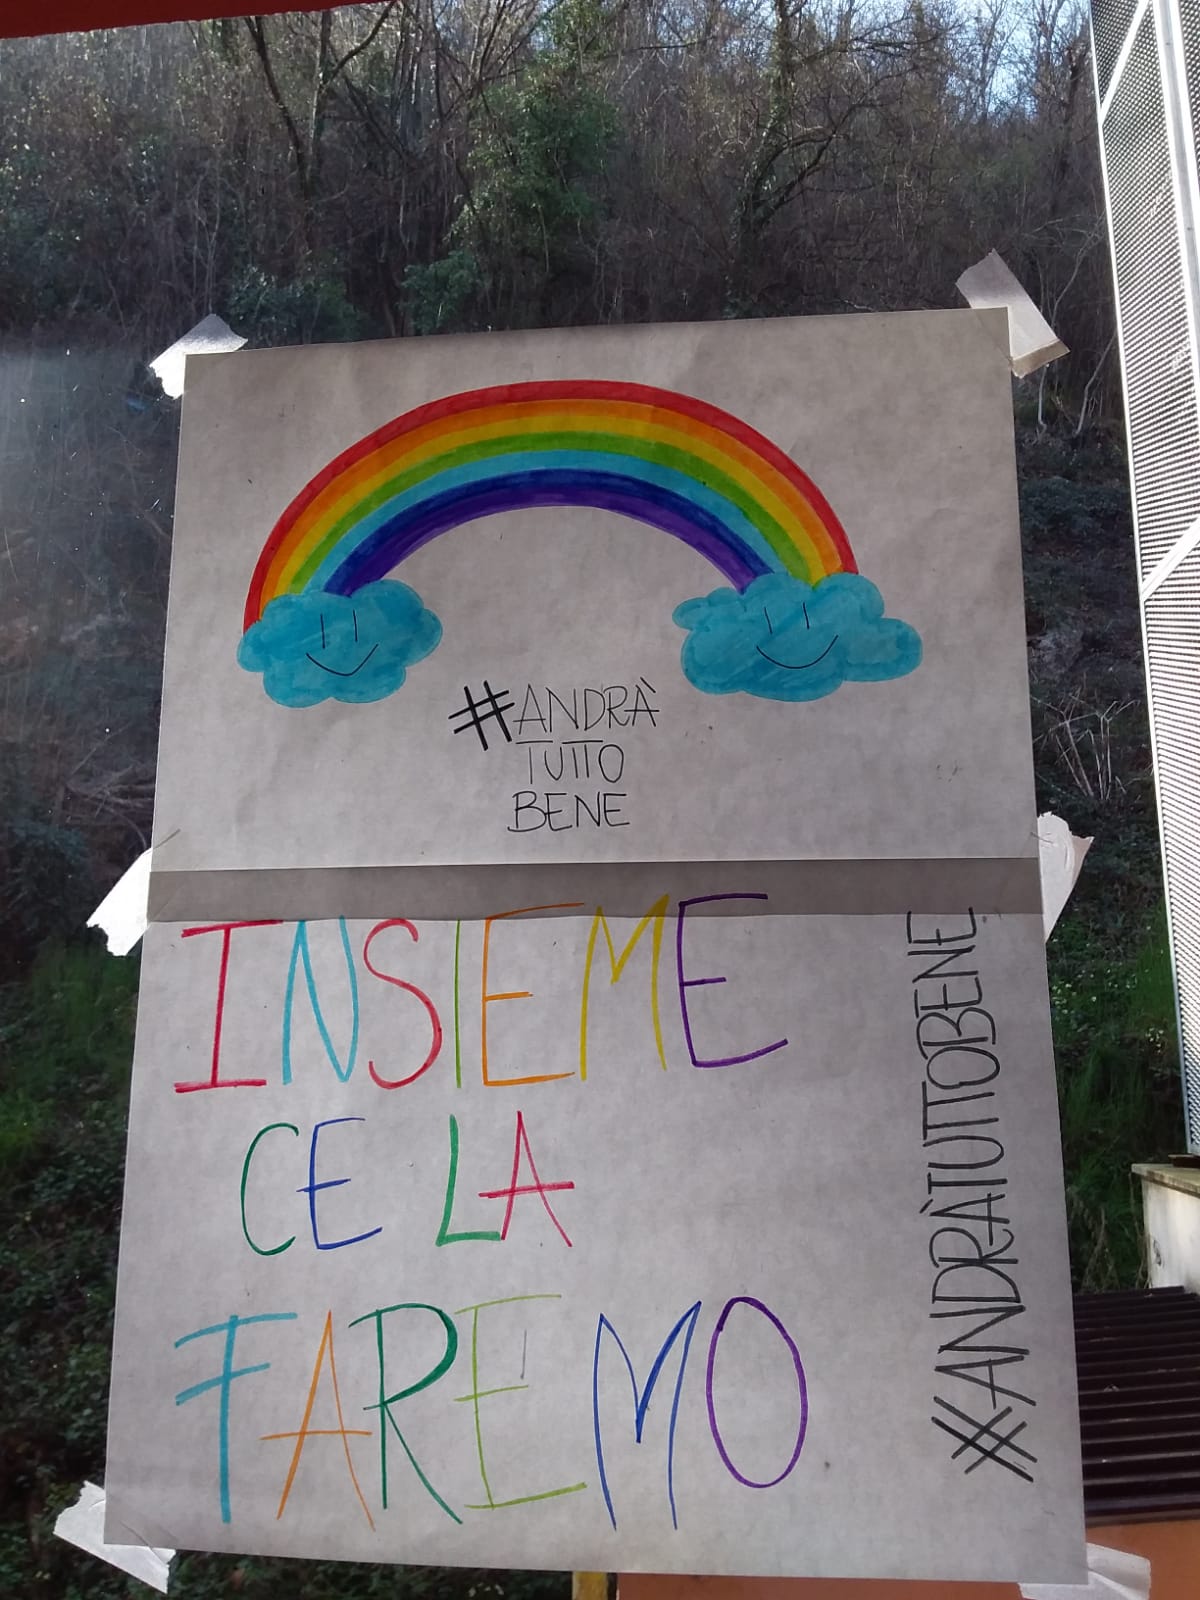 #ANDRÀ
TUTTO
BENE
INSIEME
CE LA
FAREMO
#ANDRÀTUTTOBENE